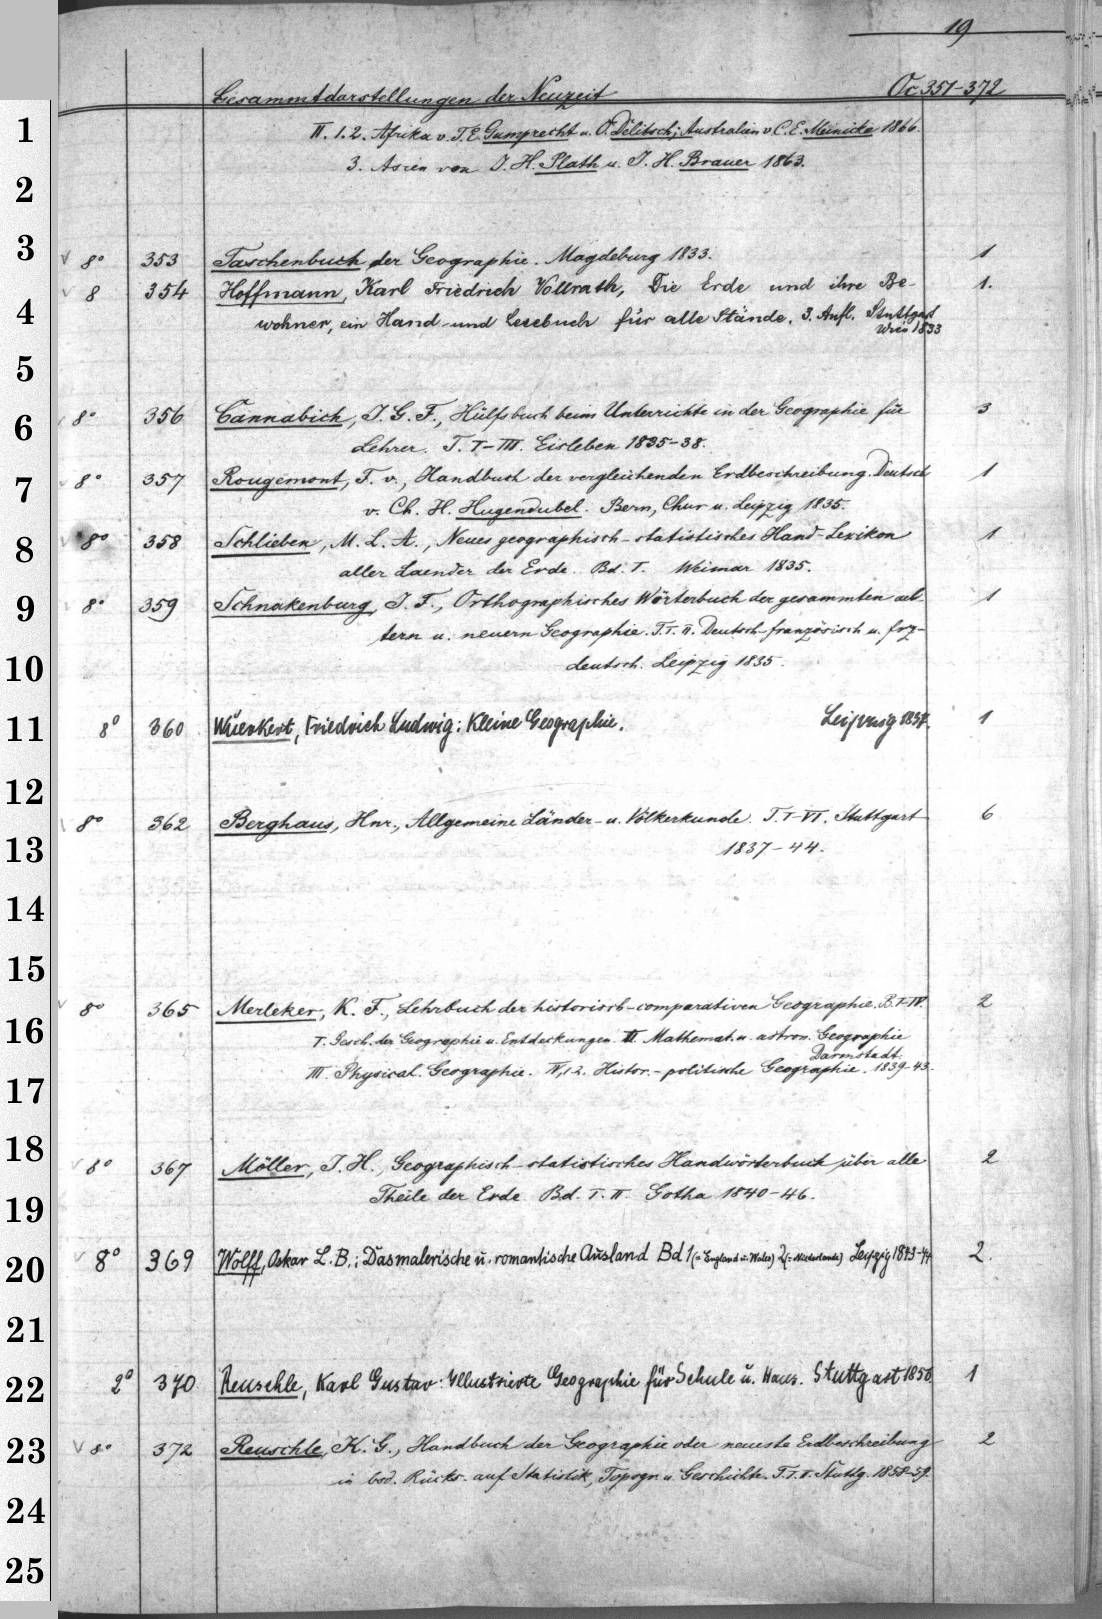 19
Gesammtdarstellungen der Neuzeit Oc 351-372
1
II. 1. 2. Afrika v. T. E. Gumprecht u. O. Delitsch; Australien v C. E. Meinicke 1866.
3. Asien von J. H. Plath u. J. H. Brauer 1863.
2
3
8° 353 Taschenbuch der Geographie. Magdeburg 1833. 1
8 354 Hoffmann, Karl Friedrich Vollrath, Die Erde und ihre Be- 1.
4
wohner, ein Hand- und Lesebuch für alle Stände. 3. Aufl. Stuttgart
Wien 1833
5
6
8° 356 Cannabich, J. G. F., Hülfsbuch beim Unterrichte in der Geographie für 3
Lehrer. T. I-III. Eisleben 1835-38.
7
8° 357 Rougemont, F. v., Handbuch der vergleichenden Erdbeschreibung. Deutsch 1
v. Ch. H. Hugendubel. Bern, Chur u. Leipzig 1835.
8
8° 358 Schlieben, M. L. A., Neues geographisch-statistisches Hand-Lexikon 1
aller Laender der Erde. Bd. I. Weimar 1835.
9
8° 359 Schnakenburg, J. F., Orthographisches Wörterbuch der gesammten ael- 1
tern u. neuern Geographie. T. I. II. Deutsch-französisch u. frz-
10
deutsch. Leipzig 1835.
11
8° 360 Wunkert, Friedrich Ludwig: Kleine Geographie. Leipzig 1837. 1
12
8° 362 Berghaus, Hnr., Allgemeine Länder- u. Völkerkunde. T. I-VI. Stuttgart 6
13
1837-44.
14
15
8° 365 Merleker, K. F., Lehrbuch der historisch-comparativen Geographie. B. I-IV. 2
16
I. Gesch. der Geographie u. Entdeckungen. II. Mathemat. u. astron. Geographie
Darmstadt
III. Physical. Geographie. IV, 1 2. Histor.-politische Geographie. 1839-43.
17
18
8° 367 Möller, J. H., Geographisch-statistisches Handwörterbuch über alle 2
Theile der Erde. Bd. I. II. Gotha 1840-46.
19
8° 369 Wolff, Oskar L. B.: Das malerische u. romantische Ausland Bd 1 (= England u. Wales) 2 (= Niederlande) Leipzig 1843-44 2.
20
21
2° 370 Reuschle, Karl Gustav: Illustrierte Geographie für Schule u. Haus. Stuttgart 1856. 1
22
23
8° 372 Reuschle, K. G., Handbuch der Geographie oder neueste Erdbeschreibung 2
in bsd. Rücks. auf Statistik, Topogr. u. Geschichte. T. I. II. Stuttg. 1858-59.
24
25